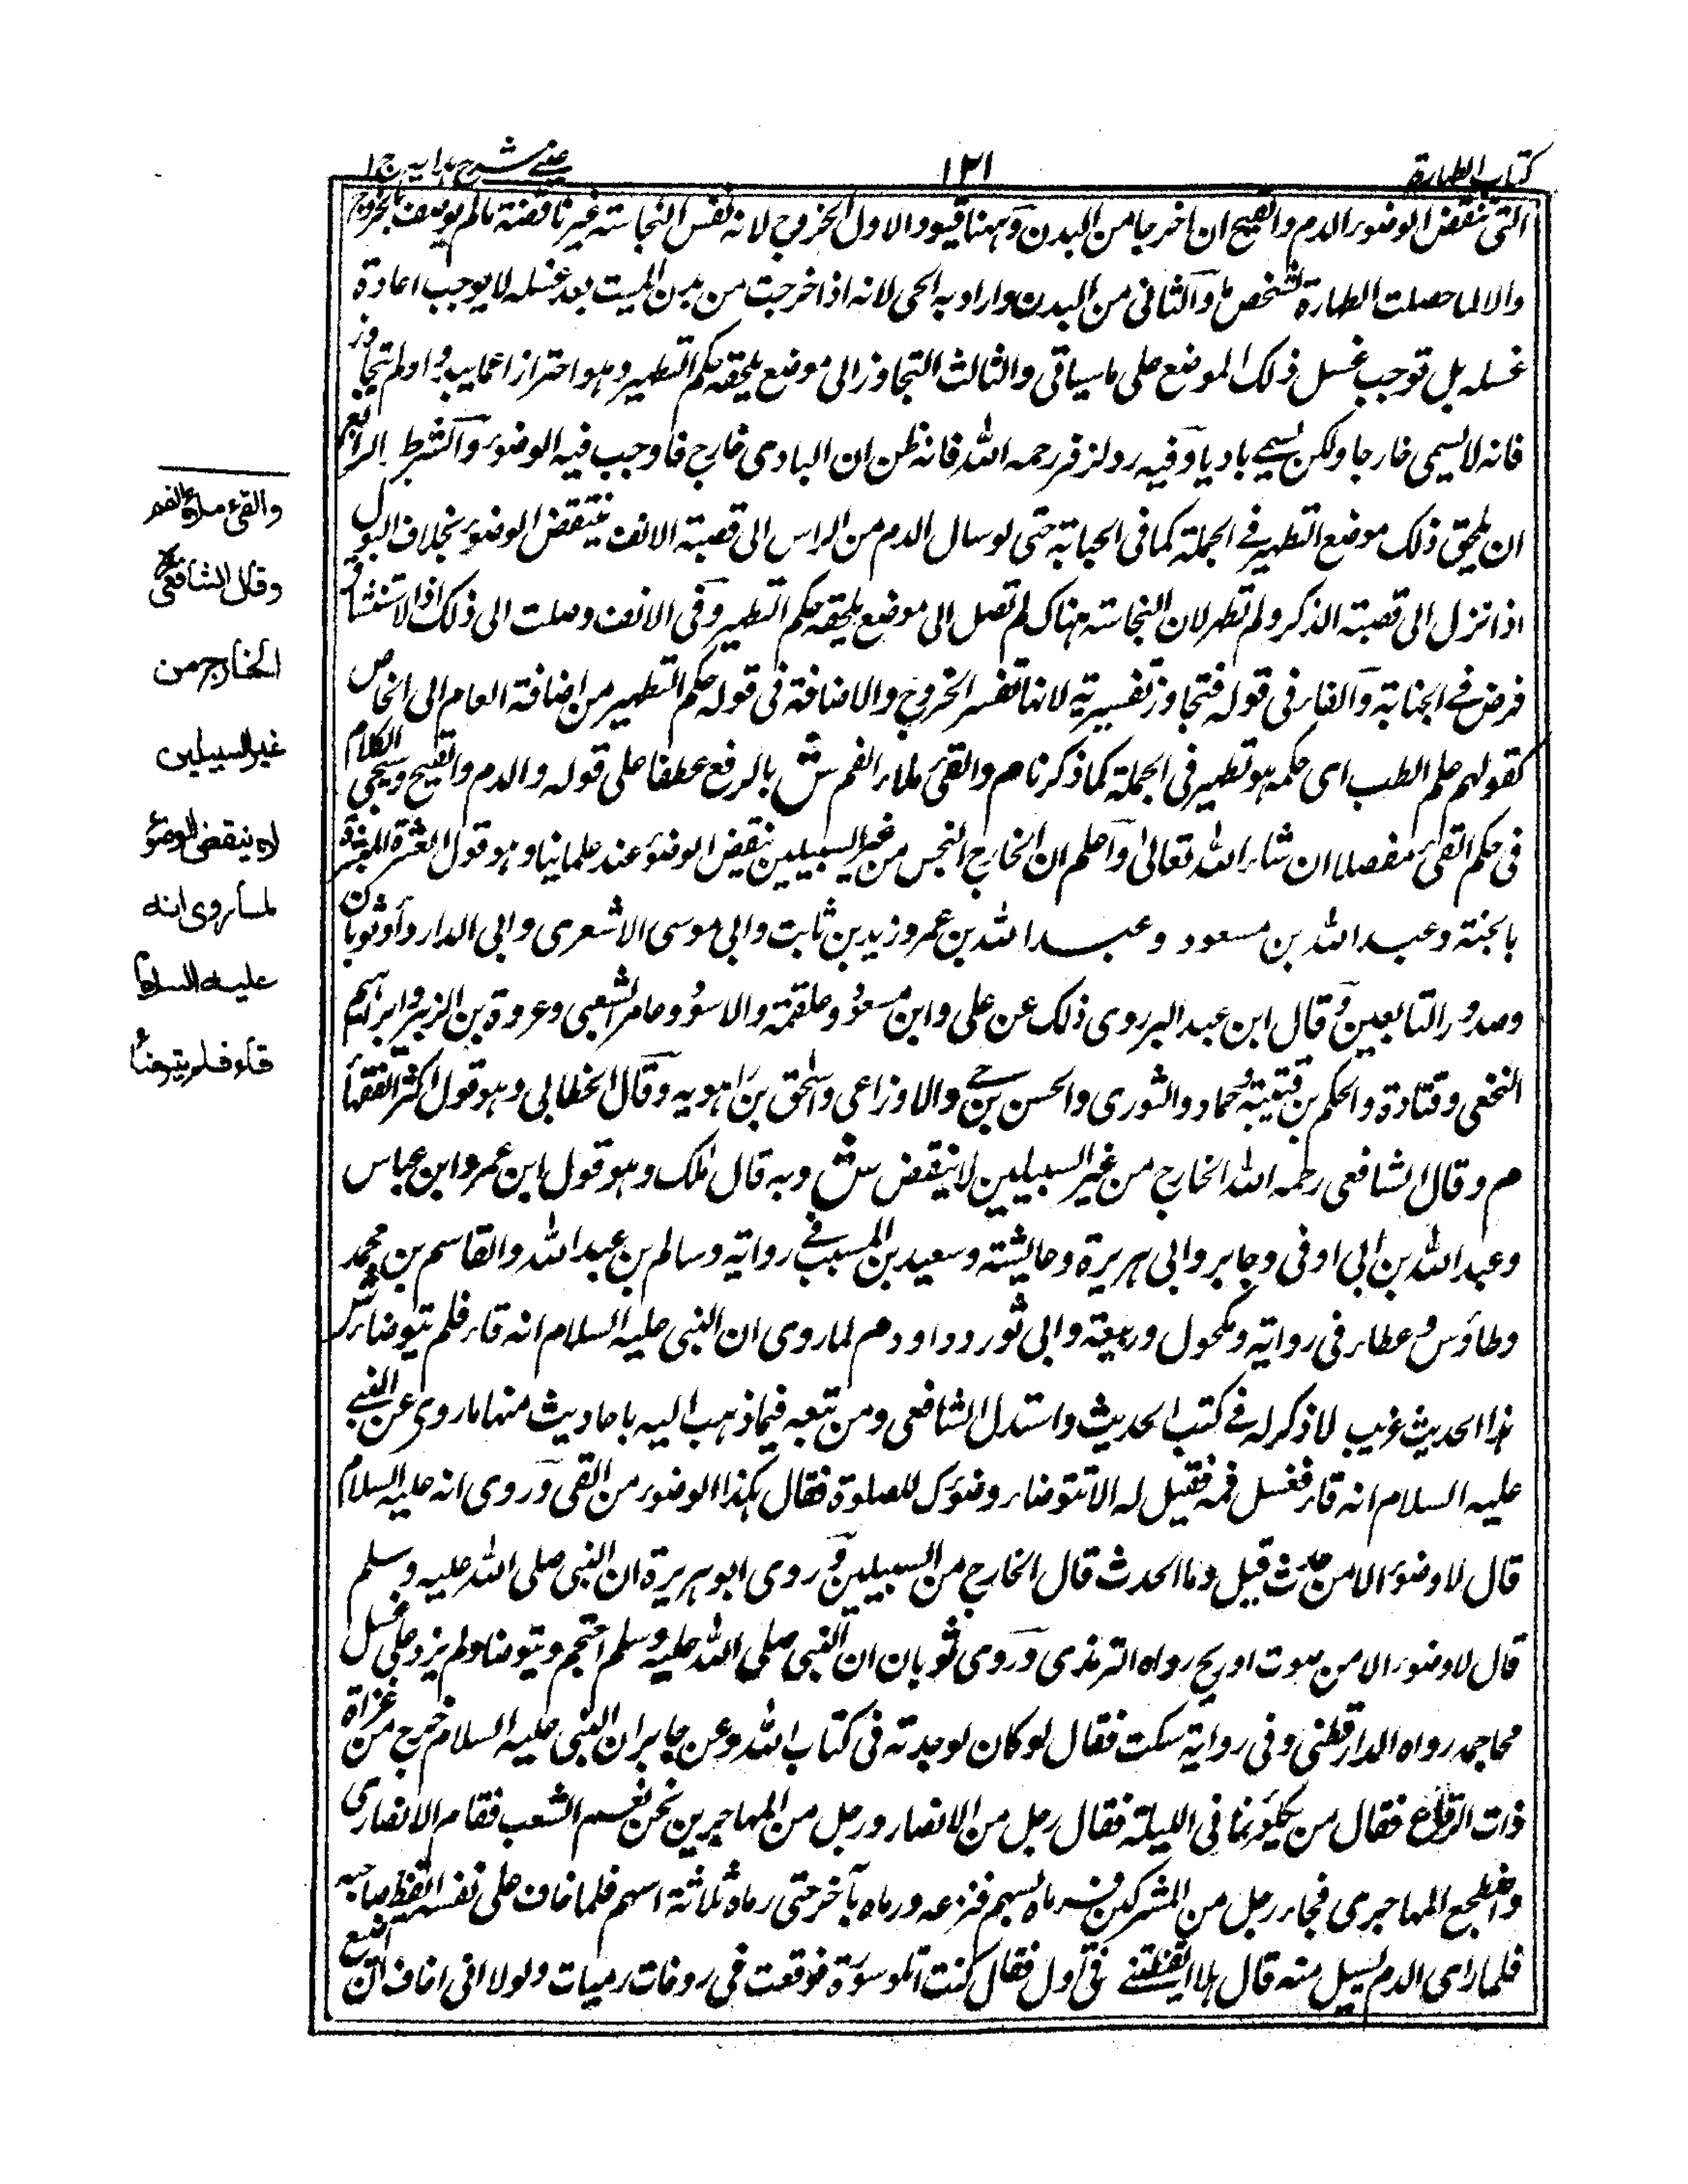 كتاب الطهارة
١٢١
عيني شرح هدايه ج ١
التي تنقض الوضوء الدم والقيح ان اخرجا من البدن وههنا قيود الاول الخروج لانه نفس النجاسة غير ناقضة مالم يوصف بالخروج
والا لما حصلت الطهارة لشخص ما والثاني من البدن واراد به الحي لانه اذا خرجت من بدن الميت بعد غسله لا يوجب اعادة
غسله بل توجب غسل ذلك الموضع على ما سياتي والثالث التجاوز الى موضع يلحقه حكم التطهير وهو احترازا عما يبدو ولم يتجاوز
فانه لا يسمى خارجا ولكن يسمى باديا وفيه رد لزفر رحمه الله فانه ظن ان البادي خارج فاوجب فيه الوضوء والشرط الرابع
ان يلحق ذلك موضع التطهير في الجملة كما في الجنابة حتى لو سال الدم من الراس الى قصبة الانف ينتقض الوضوء بخلاف البول
اذا نزل الى قصبة الذكر ولم تظهر لان النجاسة هناك لم تصل الى موضع يلحقه حكم التطهير وفي الانف وصلت الى ذلك اذ الاستنشاق
فرض في الجنابة والفاء في قوله فتجاوز تفسيرية لانها تفسر الخروج والاضافة في قوله حكم التطهير من اضافة العام الى الخاص
كقولهم علم الطب اى حكمه هو تطهير في الجملة كما ذكرنا م والقئ ملاء الفم ش بالرفع عطفا على قوله والدم والقيح وسيجئ الكلام
في حكم القئ مفصلا ان شاء الله تعالى واعلم ان الخارج النجس من غير السبيلين ينقض الوضوء عند علمائنا وهو قول العشرة المبشرة
بالجنة وعبد الله بن مسعود وعبد الله بن عمر وزيد بن ثابت وابي موسى الاشعرى وابي الدرداء وثوبان
وصدور التابعين وقال ابن عبد البر روى ذلك عن على وابن مسعود وعلقمة والاسود وعامر الشعبي وعروة بن الزبير وابراهيم
النخعي وقتادة والحكم بن قتيبة وحماد والثورى والحسن بن حي والاوزاعي واسحق بن راهويه وقال الخطابي وهو قول اكثر الفقهاء
م وقال الشافعي رحمه الله الخارج من غير السبيلين لا ينقض ش وبه قال ملك وهو قول ابن عمر وابن عباس
وعبد الله بن ابي اوفى وجابر وابي هريرة وعايشة وسعيد بن المسيب في رواية وسالم بن عبد الله والقاسم بن محمد
وطاؤس وعطاء في رواية ومكحول وربيعة وابي ثور وداود م لما روى ان النبي عليه السلام انه قاء فلم يتوضا ش
هذا الحديث غريب لا ذكر له في كتب الحديث واستدل الشافعي ومن تبعه فيما ذهب اليه باحاديث منها ما روى عن النبي
عليه السلام انه قاء فغسل فمه فقيل له الا تتوضاء وضوءك للصلوة فقال هكذا الوضوء من القي وروى انه عليه السلام
قال لا وضوء الا من حدث قيل وما الحدث قال الخارج من السبيلين وروى ابو هريرة ان النبي صلى الله عليه وسلم
قال لا وضوء الا من صوت او ريح رواه الترمذى وروى ثوبان ان النبي صلى الله عليه وسلم احتجم ويتوضا ولم يزد على غسل
محاجمه رواه الدارقطني وفي رواية سكت فقال لو كان لوجدته في كتاب الله وعن جابر ان النبي عليه السلام خرج من غزاة
ذات الرقاع فقال من يكلؤنا في الليلة فقال رجل من الانصار ورجل من المهاجرين نحن الشعب فقام الانصارى
واضطجع المهاجرى فجاء رجل من المشركين فرماه بسهم فنزعه ورماه بآخر حتى رماه ثلاثة اسهم فلما خاف على نفسه ايقظ صاحبه
فلما راى الدم يسيل منه قال هلا ايقظتني في اول فقال كنت اتلو سورة فوقعت في رميات ولولا اني اخاف ان
والقئ ملاء الفم
وقال الشافعي
الخارج من
غير السبيلين
لا ينقض الوضوء
لما روى انه
عليه السلام
قاء فلم يتوضأ